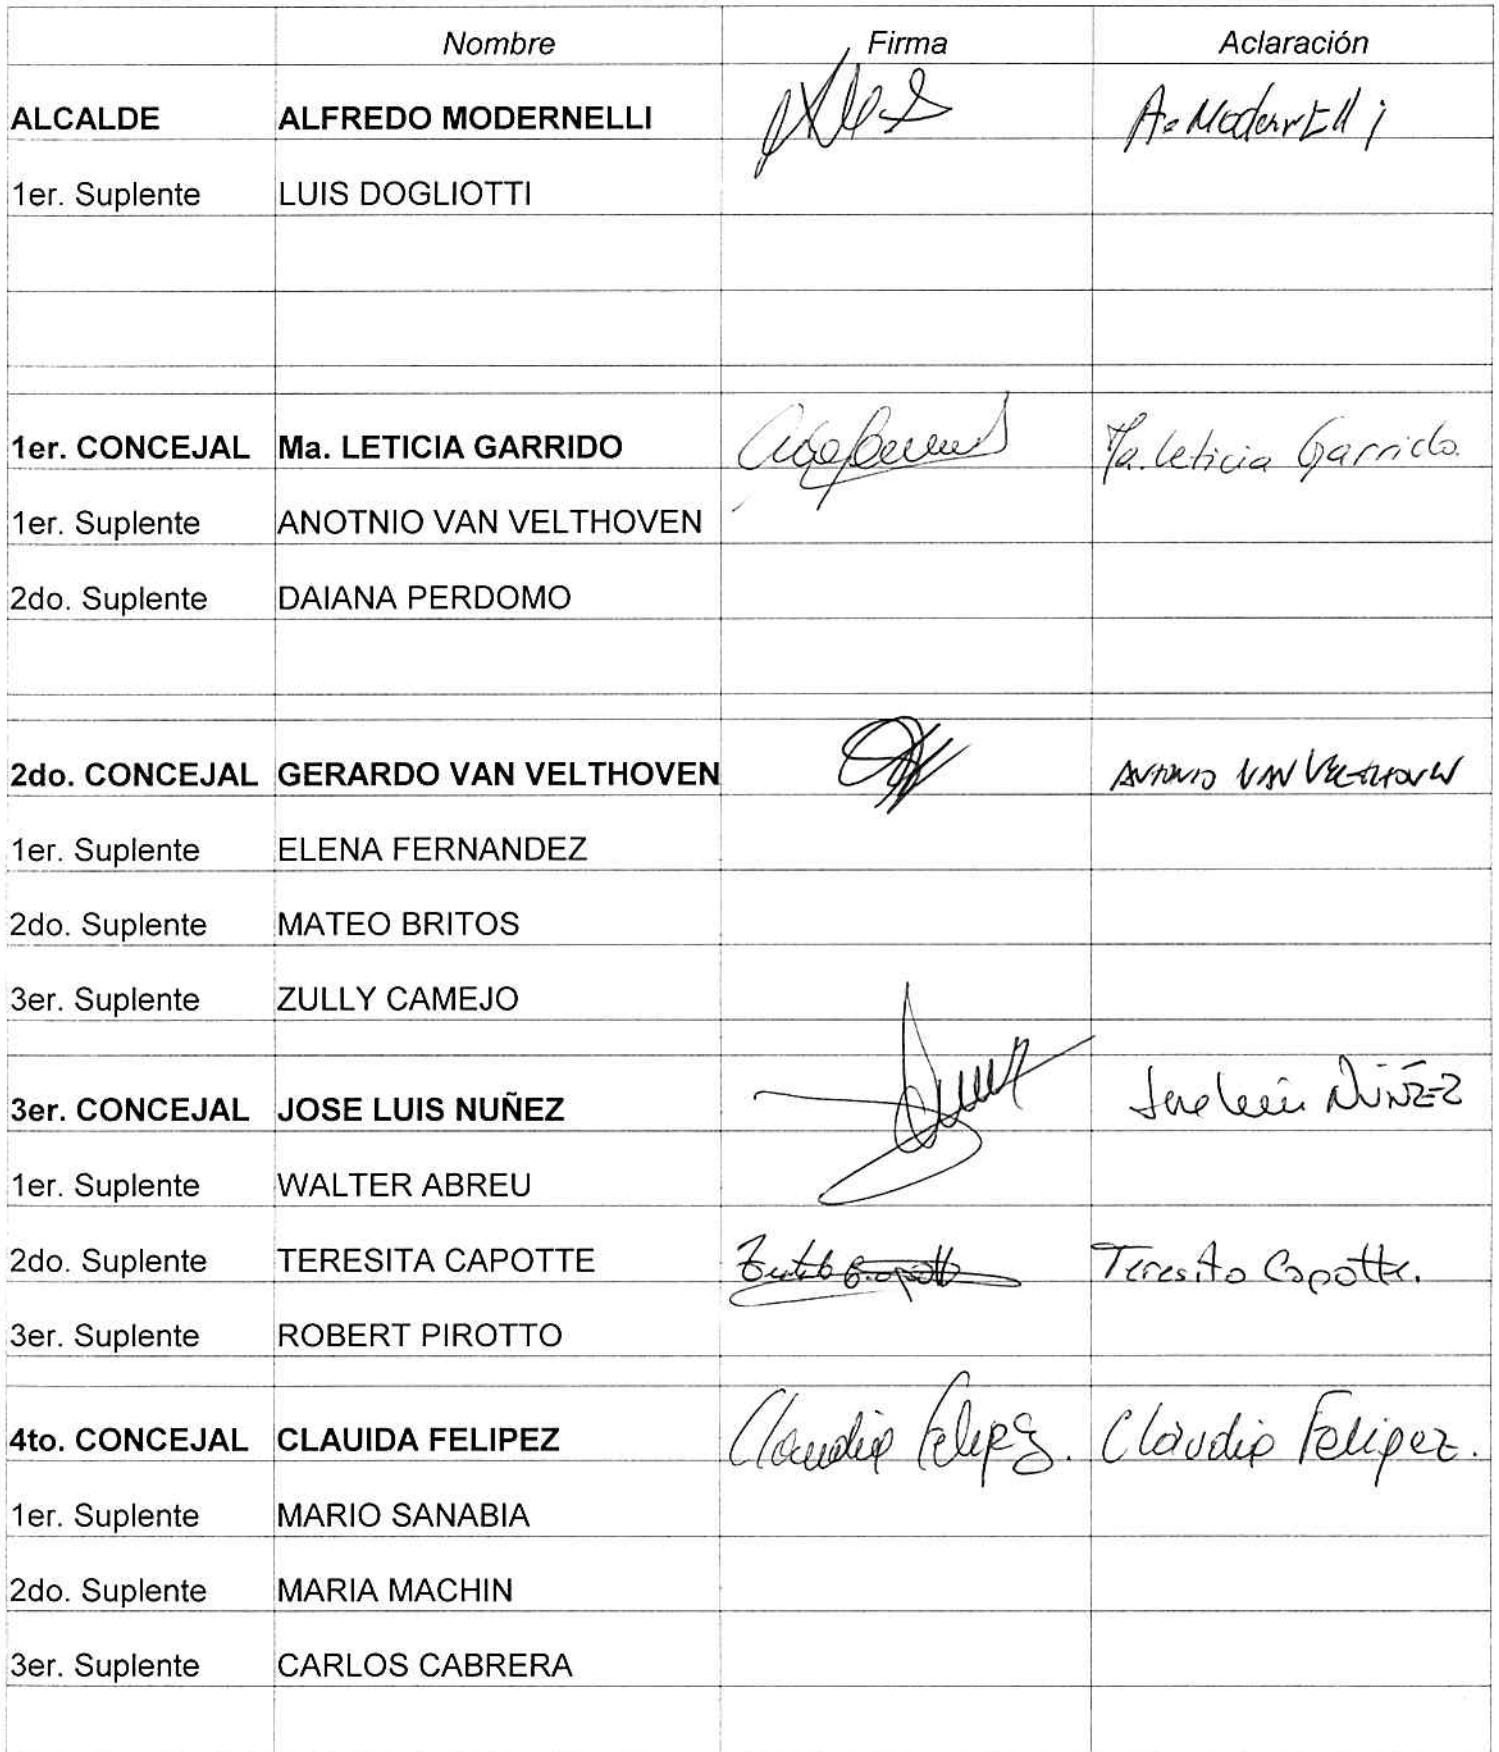 Nombre Firma Aclaración
ALCALDE ALFREDO MODERNELLI A. ModernElli
1er. Suplente LUIS DOGLIOTTI
1er. CONCEJAL Ma. LETICIA GARRIDO Ma. Leticia Garrido.
1er. Suplente ANOTNIO VAN VELTHOVEN
2do. Suplente DAIANA PERDOMO
2do. CONCEJAL GERARDO VAN VELTHOVEN ANTONIO VAN VELTHOVEN
1er. Suplente ELENA FERNANDEZ
2do. Suplente MATEO BRITOS
3er. Suplente ZULLY CAMEJO
3er. CONCEJAL JOSE LUIS NUÑEZ Jose Luis NÚÑEZ
1er. Suplente WALTER ABREU
2do. Suplente TERESITA CAPOTTE Teresita Capotte.
3er. Suplente ROBERT PIROTTO
4to. CONCEJAL CLAUIDA FELIPEZ Claudia Felipez. Claudia Felipez.
1er. Suplente MARIO SANABIA
2do. Suplente MARIA MACHIN
3er. Suplente CARLOS CABRERA